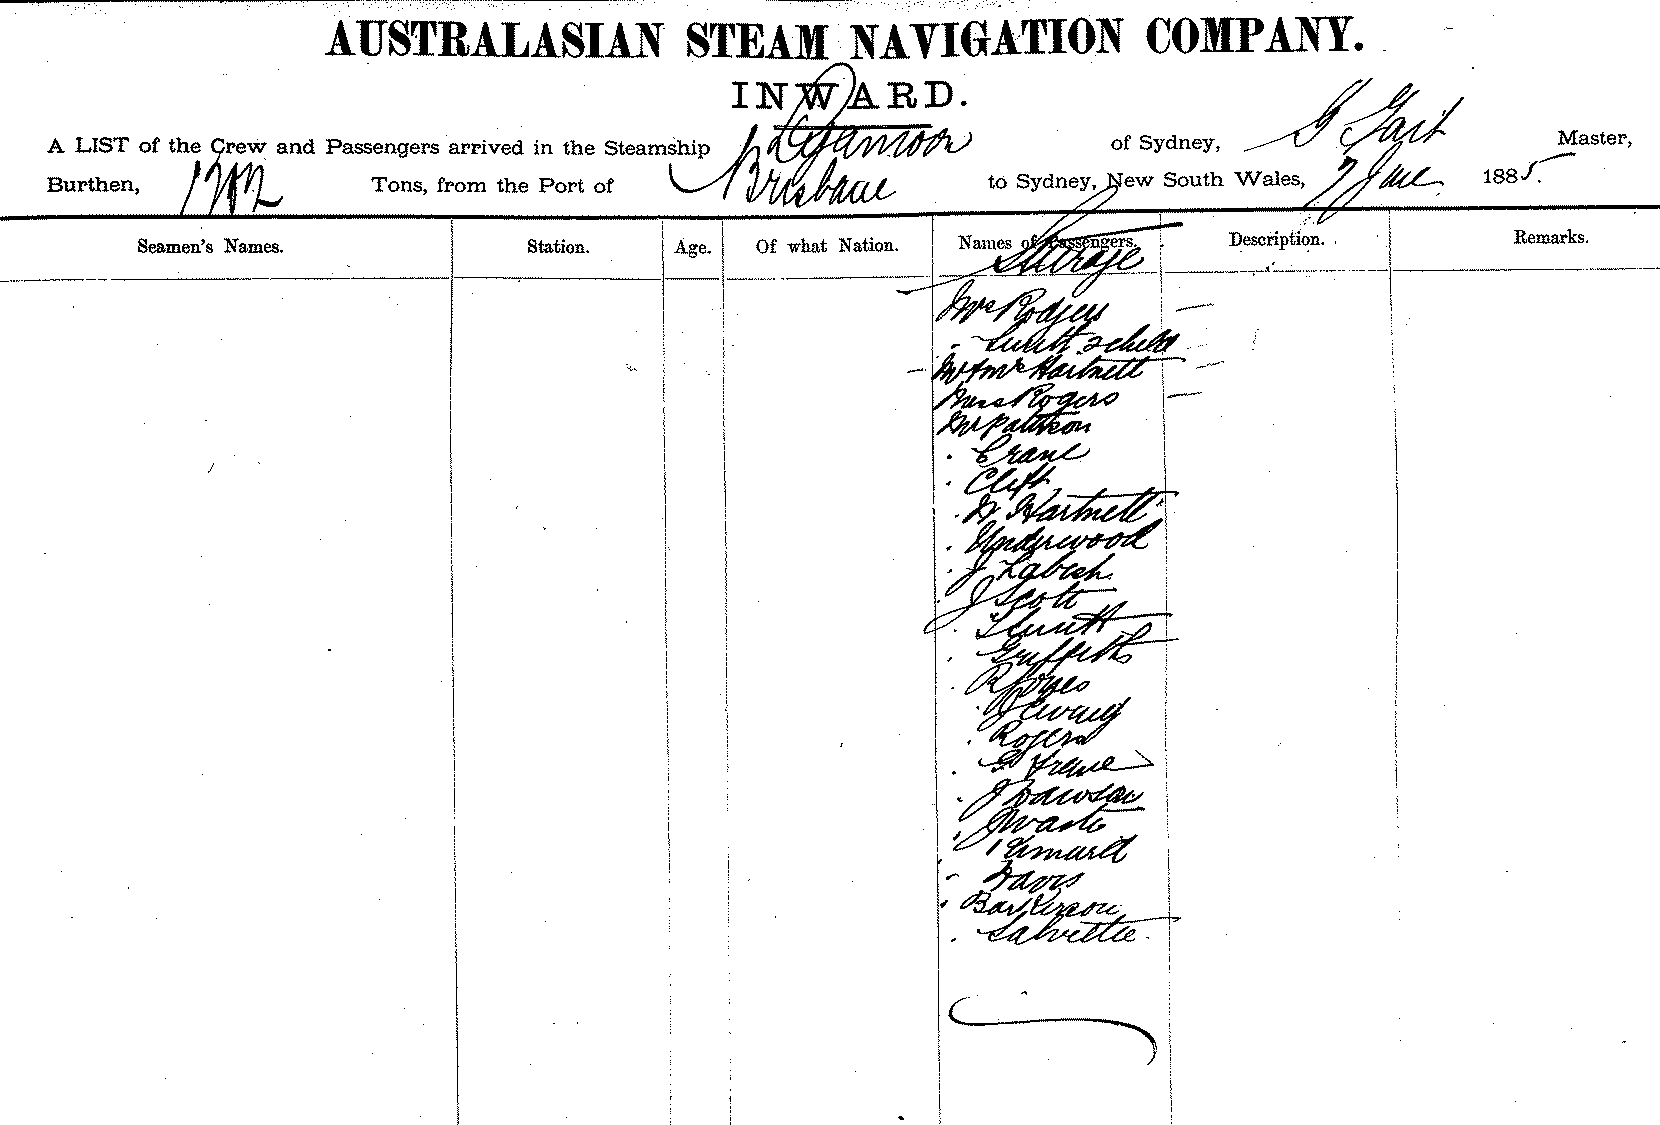 AUSTRALASIAN STEAM NAVIGATION COMPANY.
INWARD.
A LIST of the Crew and Passengers arrived in the Steamship of Sydney, Master,
Burthen, Tons, from the Port of Brisbane to Sydney, New South Wales, 7 June 1885.
Seamen's Names. Station. Age. Of what Nation. Names of Passengers. Description. Remarks.
Steerage
Mrs Rodgers
" Smith & child
Mr & Mrs Hartnett
Miss Rogers
Mr Pattison
" Crane
" Clift
" W Hartnett
" Underwood
" J
" J Scott
" Smith
" Griffiths
" R Jones
" J
" Rogers
" G
" J Dawson
" J
"
" Davis
"
"